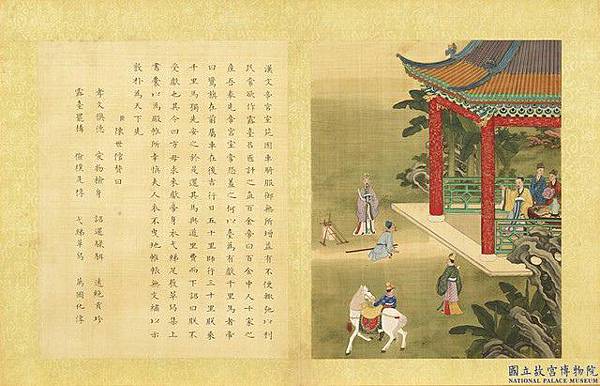 漢文帝宮室苑囿車騎服御無所增益有不便輒弛以利
民嘗欲作露臺召匠計之直百金帝曰百金中人十家之
產吾奉先帝宮室常恐羞之何以臺為有獻千里馬者帝
曰鸞旗在前屬車在後吉行日五十里師行三十里朕乘
千里馬獨先安之於是還其馬與道里費而下詔曰朕不
受獻也其令四方毋求來獻帝身衣弋綈足履革舄集上
書囊以為殿帷所幸慎夫人衣不曳地帷帳無文繡以示
敦朴為天下先
臣陳世倌贊曰
孝文 德 物檢身 詔還 遠絕貢珍
露臺罷構 儉樸是 弋綈革舄 萬國化淳
國立故宮博物院
NATIONAL PALACE MUSEUM